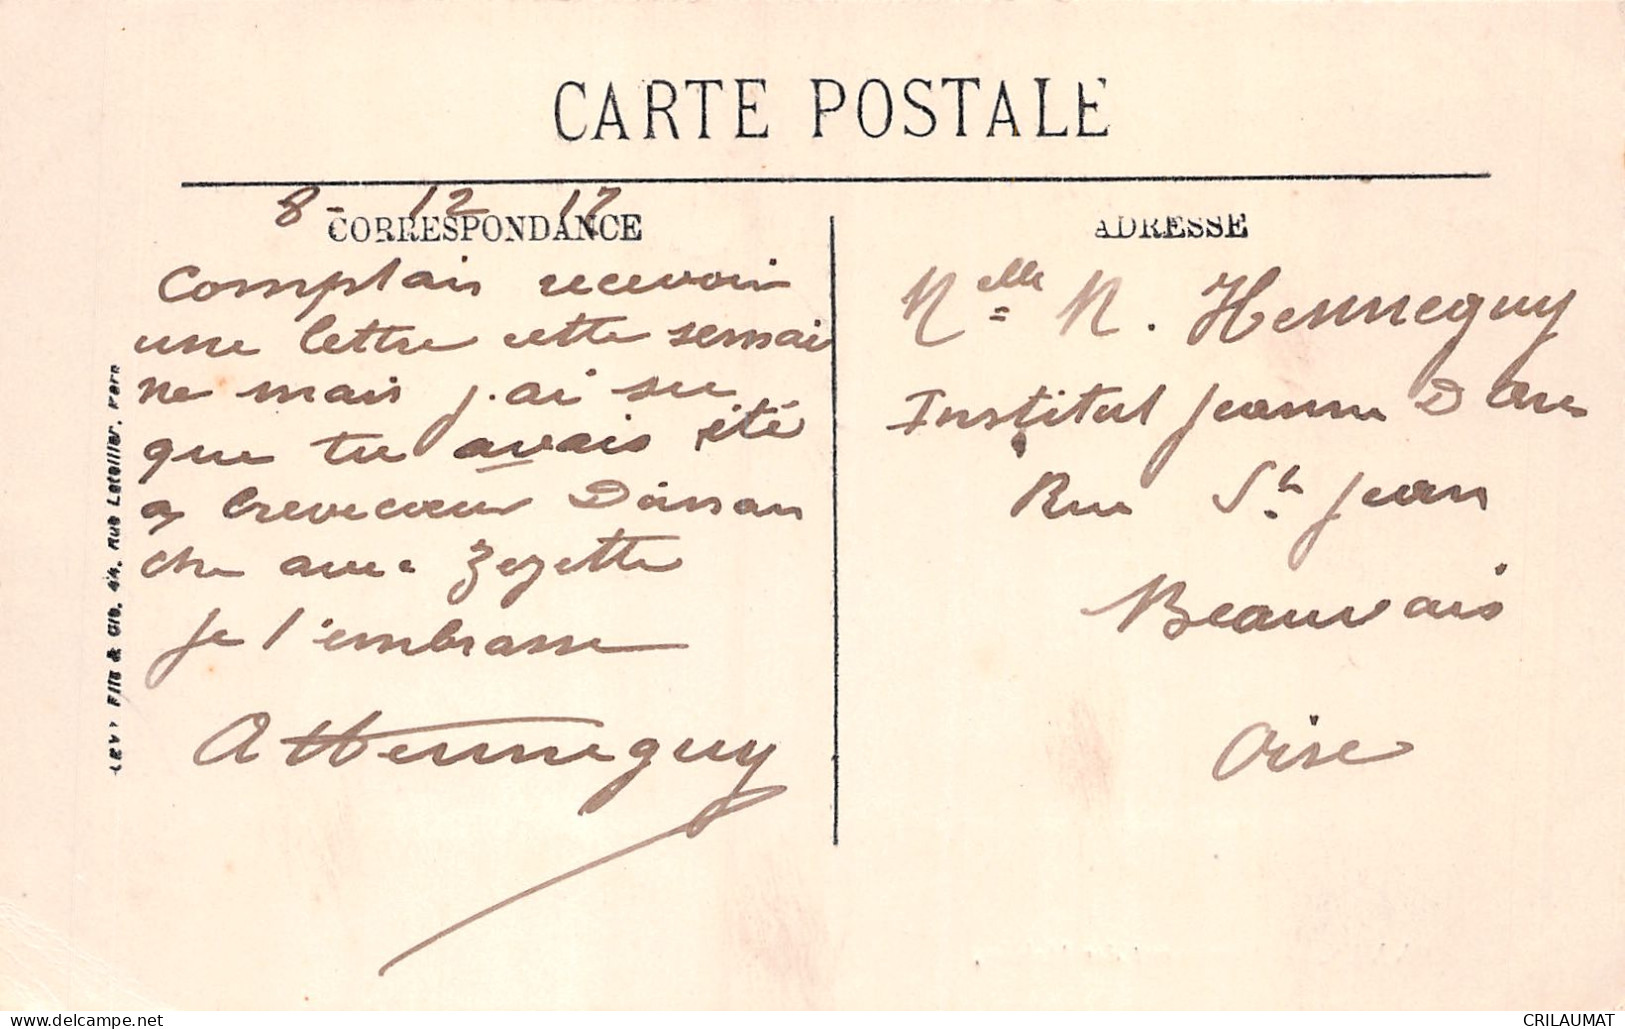 CARTE POSTALE
8 - 12 17
CORRESPONDANCE
Comptais recevoir
une lettre cette semai
ne mais j.ai su
que tu avais été
a Crevecoeur Diman
che avec Zezette
Je t'embrasse
A Henneguy
ADRESSE
Melle M. Henneguy
Institut Jeanne D Arc
Rue St. Jean
Beauvais
Oise
LEVY Fils & Cie, 44, Rue Letellier, Paris
CRILAUMAT